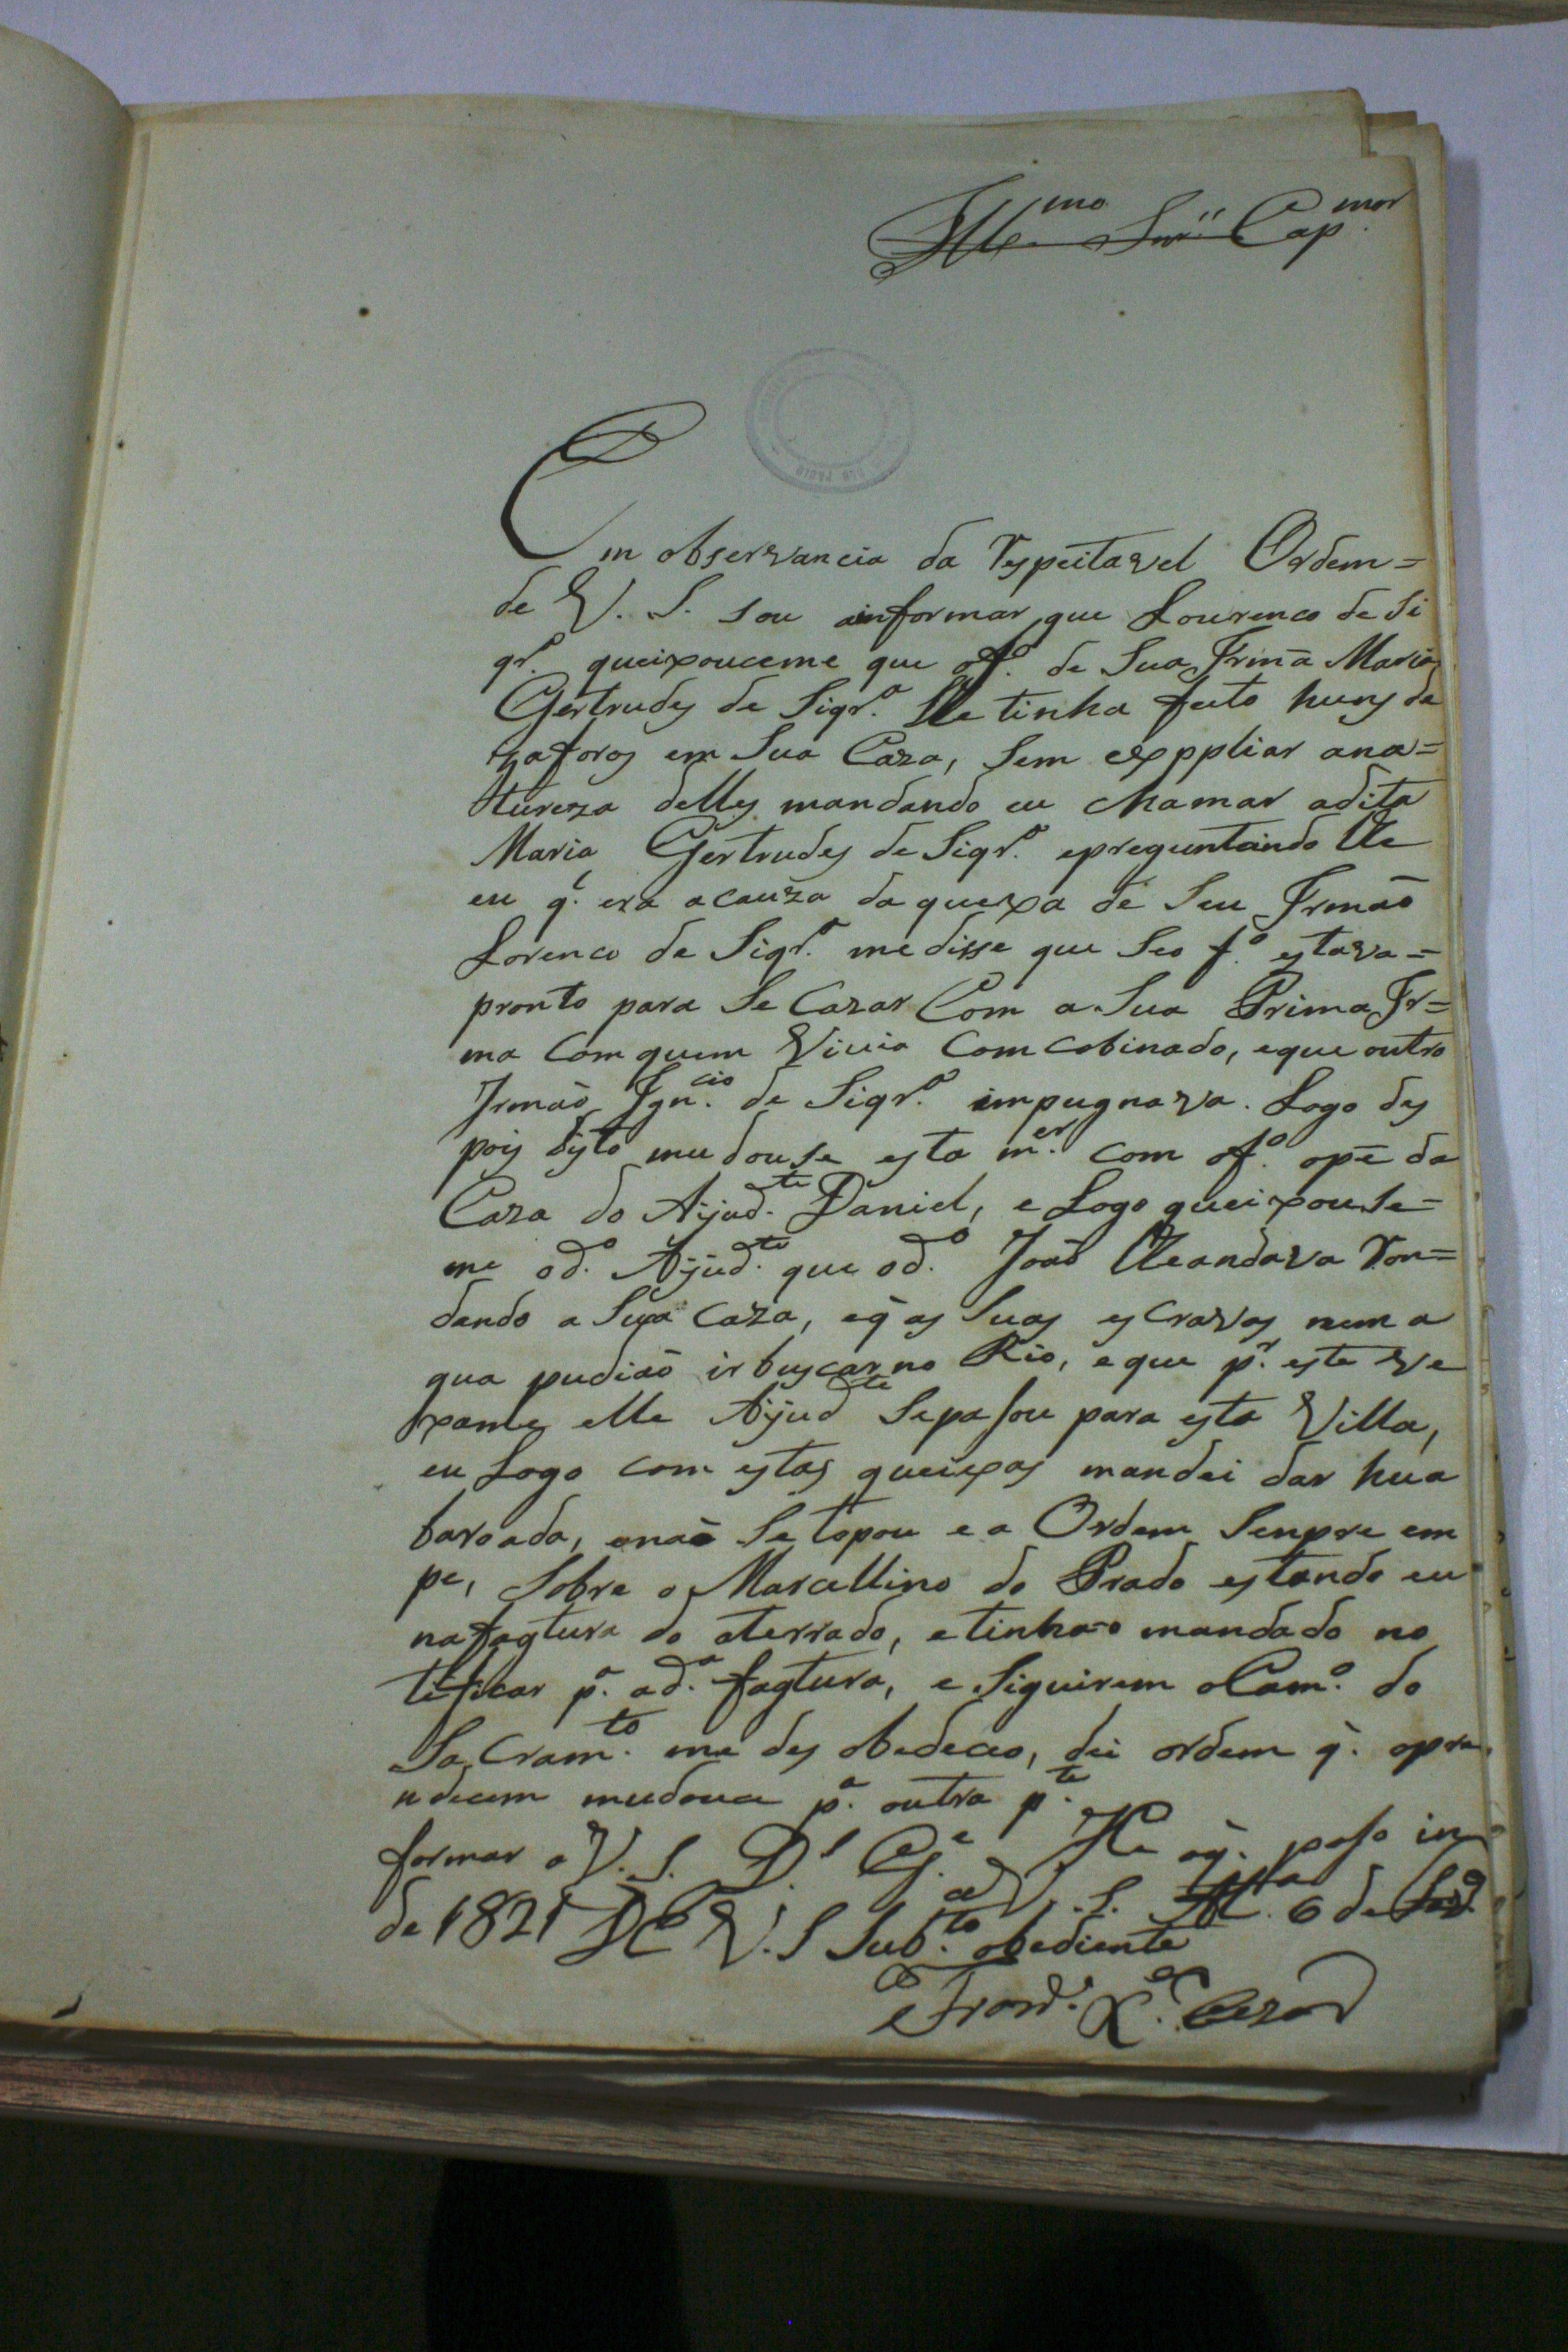 Ill.mo Snr. Cap.mor
Em observancia da Respeitavel Ordem=
de V. S. sou informar que Lourenco de Si
qr.a queixouceme que o f.o de Sua Irmã Maria
Gertrudes de Siqr.a lle tinha feito huns de
zaforos em Sua Caza, Sem exppliar ana=
tureza delles mandando eu chamar adita
Maria Gertrudes de Siqr.a epreguntando lle
eu q.e era acauza daquexa de Seu Irmaõ
Lorenco de Siqr.a medisse que Seo f.o estava=
pronto para Se Cazar Com a Sua Prima Ir=
ma Com quem Vivia Comcobinado, eque outro
Irmaõ Ign.cio de Siqr.a impugnava. Logo des
pois disto mudouse esta m.er com o f.o opé da
Caza do Ajud.te Daniel, e Logo queixouse=
me o d.o Ajud.te que o d.o Joaõ lleandava Ron=
dando a Sua Caza, eq̃ as Suas escravas nem a
gua pudiaõ ir buscar no Rio, e que p.r este ve
xame elle Ajud.te Sepasou para esta Villa,
eu Logo com estas queixas mandei dar hua
baroada, enaõ Se topou e a Ordem Senpre em
pe, Sobre o Marcellino do Prado estando eu
nafagtura do aterrado, etinha-o mandado no
tificar p.a ad.a fagtura, e Siguirem oCam.o do
SaCram.to me des obedeceo, dei ordem q.e opre
ndecem mudouce p.a outra p.te
He oq.e poso in
formar a V. S. D.s G.e
a V. S. 6 de
de 1821 De V. S Sub.to obediente
Cezar